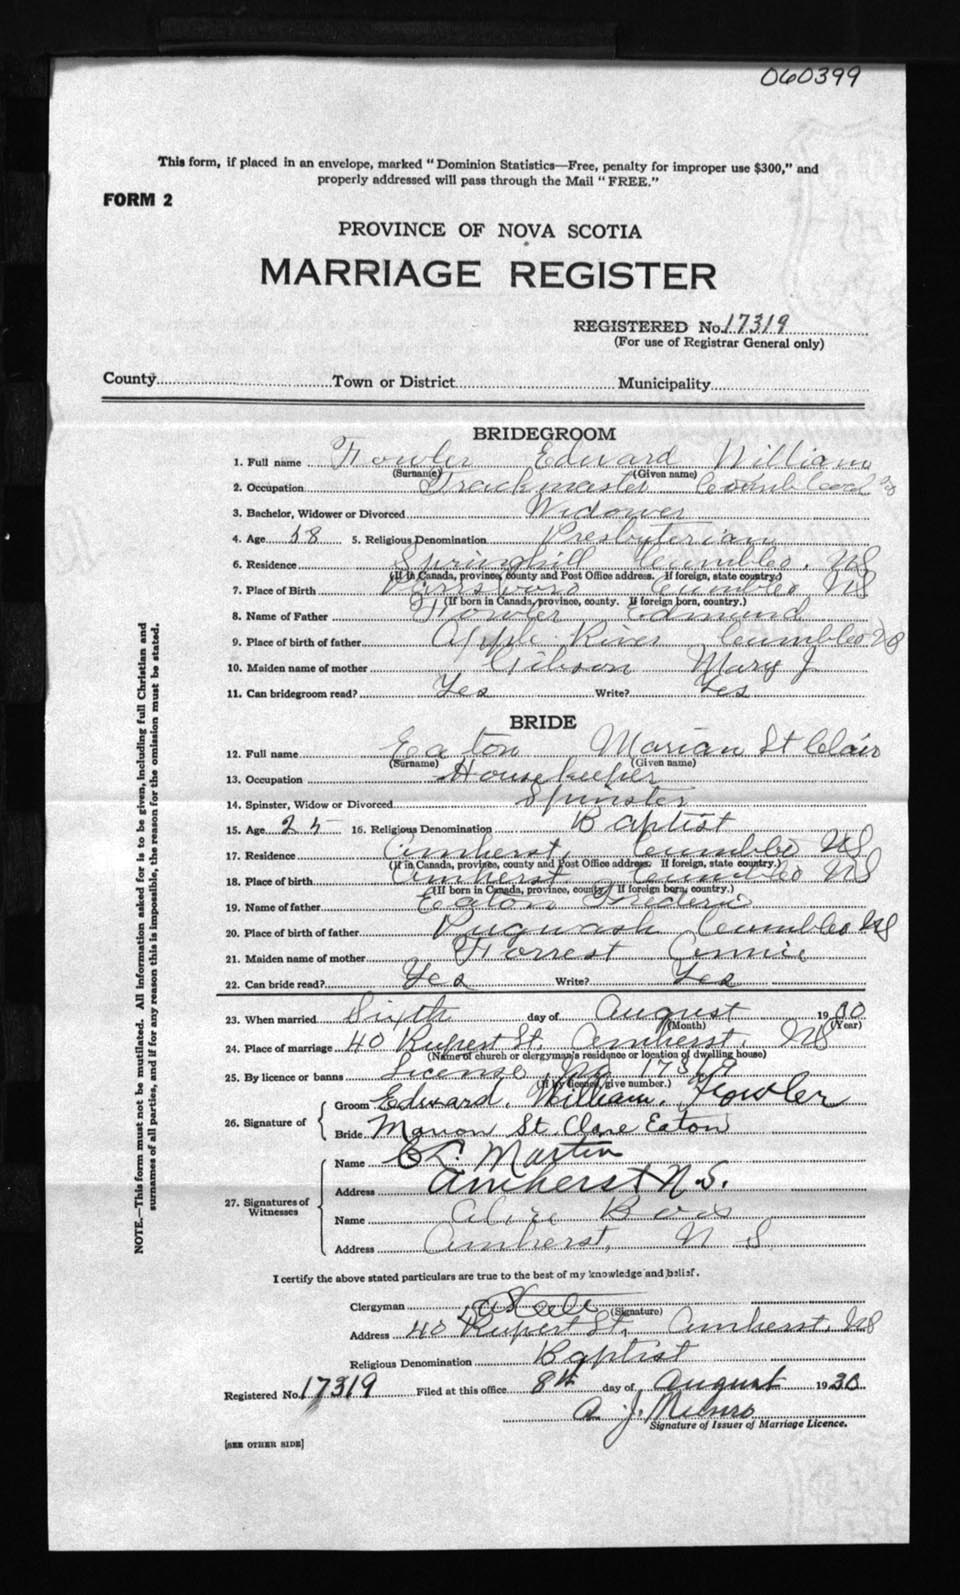 060399
This form, if placed in an envelope, marked "Dominion Statistics—Free, penalty for improper use $300," and
properly addressed will pass through the Mail "FREE."
FORM 2
PROVINCE OF NOVA SCOTIA
MARRIAGE REGISTER
REGISTERED No. 17319
(For use of Registrar General only)
County Town or District Municipality
BRIDEGROOM
1. Full name Fowler Edward William
(Surname) (Given name)
2. Occupation Trackmaster
3. Bachelor, Widower or Divorced Widower
4. Age 58 5. Religious Denomination Presbyterian
6. Residence Springhill Cumbld. NS
(If in Canada, province, county and Post Office address. If foreign, state country.)
7. Place of Birth Parrsboro Cumbld NS
(If born in Canada, province, county. If foreign born, country.)
8. Name of Father Fowler Edmund
9. Place of birth of father Apple River Cumbld NS
10. Maiden name of mother Gibson Mary J
11. Can bridegroom read? Yes Write? Yes
BRIDE
12. Full name Eaton Marian St Clair
(Surname) (Given name)
13. Occupation Housekeeper
14. Spinster, Widow or Divorced Spinster
15. Age 25 16. Religious Denomination Baptist
17. Residence Amherst, Cumbld NS
(If in Canada, province, county and Post Office address. If foreign, state country.)
18. Place of birth Amherst Cumbld NS
(If born in Canada, province, county. If foreign born, country.)
19. Name of father Eaton
20. Place of birth of father Pugwash Cumbld NS
21. Maiden name of mother Forrest Annie
22. Can bride read? Yes Write? Yes
23. When married Sixth day of August 1930
(Month) (Year)
24. Place of marriage 40 Rupert St. Amherst, NS
(Name of church or clergyman's residence or location of dwelling house)
25. By licence or banns License No 17319
(If by licence, give number.)
26. Signature of
Groom Edward. William. Fowler
Bride Marion St. Clare Eaton
27. Signatures of Witnesses
Name C L. Martin
Address Amherst N.S.
Name Alice
Address Amherst, N S
I certify the above stated particulars are true to the best of my knowledge and belief.
Clergyman
(Signature)
Address 40 Rupert St, Amherst, NS
Religious Denomination Baptist
Registered No. 17319 Filed at this office 8th day of August 1930
A. J. Munro
Signature of Issuer of Marriage Licence.
[SEE OTHER SIDE]
NOTE.—This form must not be mutilated. All information asked for is to be given, including full Christian and
surnames of all parties, and if for any reason this is impossible, the reason for the omission must be stated.